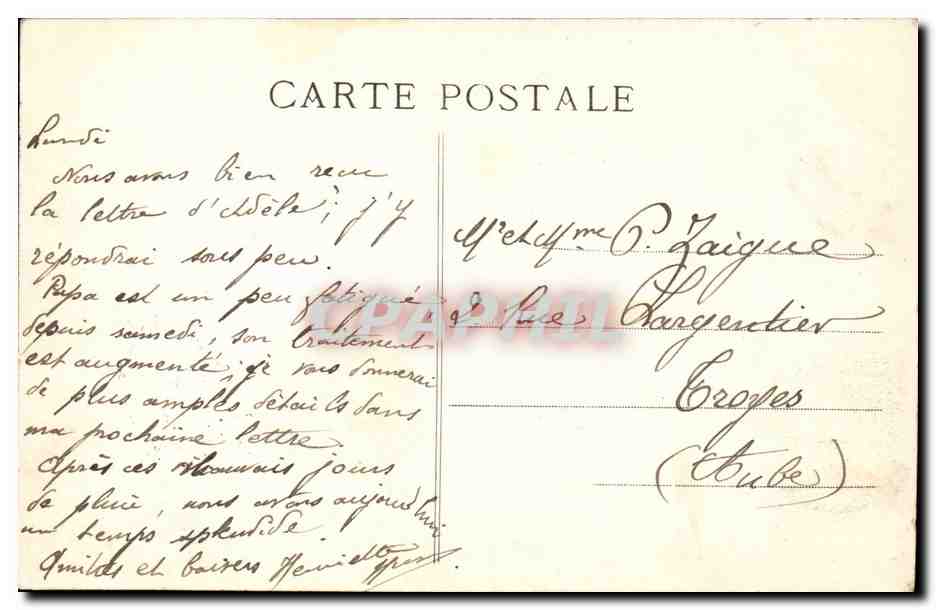 CARTE POSTALE
Lundi
Nous avons bien recu
la lettre d'Adèle; j'y
répondrai sous peu.
Papa est un peu fatigué
depuis samedi, son traitement
est augmenté, je vous donnerai
de plus amples détails dans
ma prochaine lettre.
Après ces mauvais jours
de pluie, nous avons aujourd'hui
un temps splendide.
Amitiés et baisers Henriette
Mr et Mme P. Zaigue
2 Rue Largentier
Troyes
(Aube)
CPAPHIL